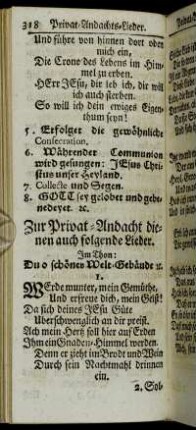 318 Privat-Andachts-Lieder.
Und führe von hinnen dort oben
mich ein,
Die Crone des Lebens im Him-
mel zu erben.
HErr JEsu, dir leb ich, dir will
ich auch sterben.
So will ich dein ewiges Eigen-
thum seyn!
5. Erfolget die gewöhnliche
Consecration.
6. Währender Communion
wird gesungen: JEsus Chri-
stus unser Heyland.
7. Collecte und Segen.
8. GOTT sey gelobet und gebe-
nedeyet. ꝛc.
Zur Privat-Andacht die-
nen auch folgende Lieder.
Im Thon:
Du o schönes Welt-Gebäude ꝛc.
1.
WErde munter, mein Gemüthe,
Und erfreue dich, mein Geist!
Da sich deines JEsu Güte
Uberschwenglich an dir preißt.
Ach mein Hertz soll hier auf Erden
Ihm ein Gnaden-Himmel werden.
Denn er zieht im Brodt und Wein
Durch sein Nachtmahl drinnen
ein.
2. Sol-